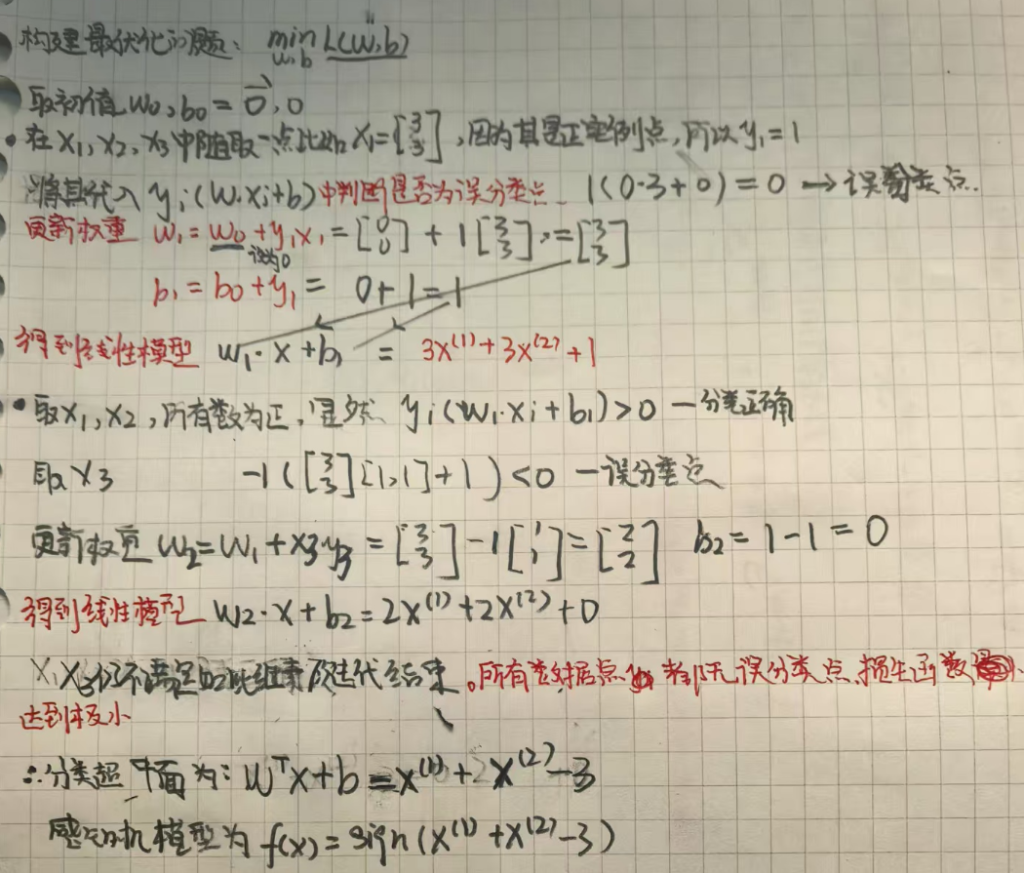 构建最优化问题: min L(w,b)
w,b
取初值 w₀,b₀ = 0⃗, 0
• 在 x₁,x₂,x₃中随取一点比如 x₁=[3 3], 因为其是正实例点, 所以 y₁=1
将其代入 yᵢ(w·xᵢ+b)中判断是否为误分类点. 1(0·3+0)=0 → 误分类点.
更新权重 w₁=w₀+y₁x₁=[0 0]+1[3 3]=[3 3]
设为0
b₁=b₀+y₁= 0+1=1
得到线性模型 w₁·x+b₁ = 3x⁽¹⁾+3x⁽²⁾+1
• 取x₁,x₂, 所有数为正, 显然 yᵢ(w₁·xᵢ+b₁)>0 —分类正确
取 x₃ -1([3 3][1,1]+1)<0 —误分类点
更新权重 w₂=w₁+x₃y₃=[3 3]-1[1 1]=[2 2] b₂=1-1=0
得到线性模型 w₂·x+b₂=2x⁽¹⁾+2x⁽²⁾+0
x₃仍不满足 迭代结束。所有数据点都无误分类点,损失函数
达到极小
∴分类超平面为: wᵀx+b=x⁽¹⁾+x⁽²⁾-3
感知机模型为 f(x)=sign(x⁽¹⁾+x⁽²⁾-3)